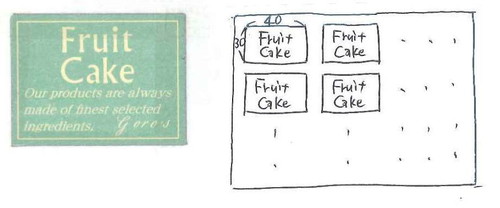 Fruit
Cake
Our products are always
made of finest selected
ingredients.
40
30
Fruit
Cake
Fruit
Cake
Fruit
Cake
Fruit
Cake